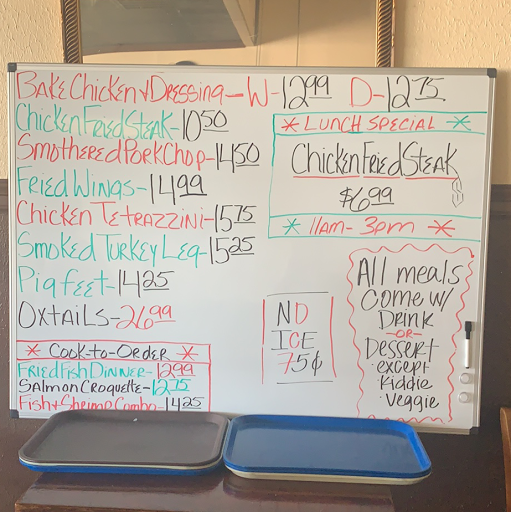 Bake Chicken & Dressing-W-12.99 D-12.75
Chicken Fried Steak-10.50
Smothered Pork Chop-14.50
Fried Wings-14.99
Chicken Tetrazzini-15.75
Smoked Turkey Leg-15.25
Pig feet-14.25
Oxtails-26.99
* Cook-to-Order *
Fried Fish Dinner-12.99
Salmon Croquette-12.75
Fish & Shrimp Combo-14.25
* Lunch Special *
Chicken Fried Steak
$6.99
* 11am-3pm *
NO
ICE
75¢
All meals
Come w/
Drink
-OR-
Dessert
·except
Kiddie
·Veggie